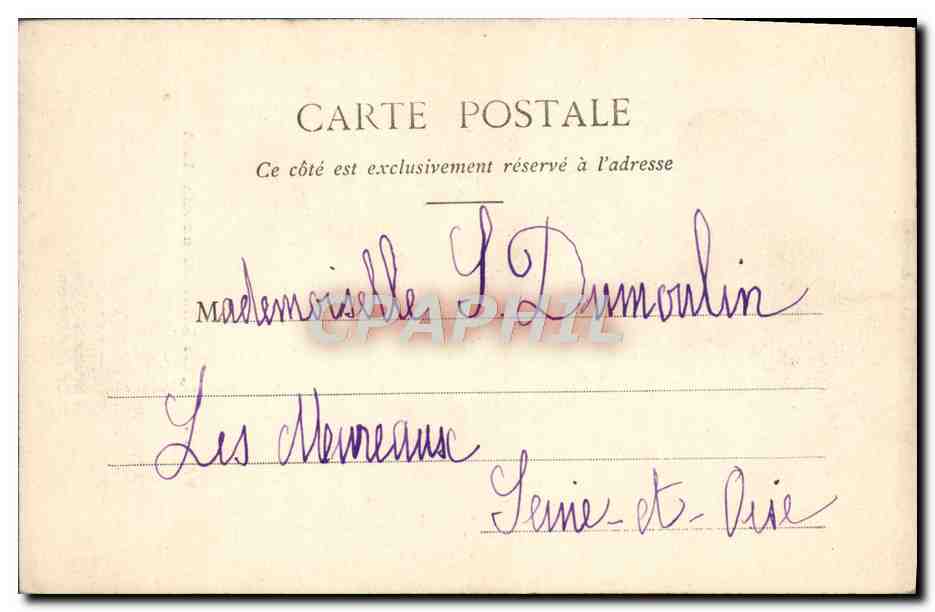 CARTE POSTALE
Ce côté est exclusivement réservé à l'adresse
Mademoiselle S. Dumoulin
CPAPHIL
Les Mureaux
Seine-et-Oise